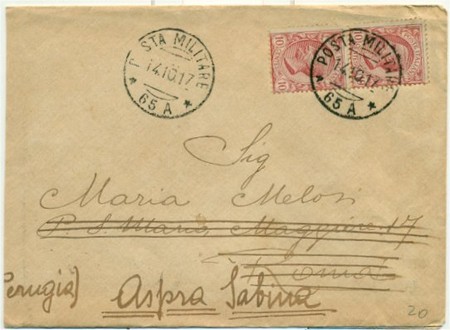 POSTA MILITARE
14.10.17
65 A
POSTA MILITARE
14.10.17
65 A
Sig
Maria Melosi
P. S. Maria Maggiore 17
Roma
(Perugia) Aspra Sabina
20